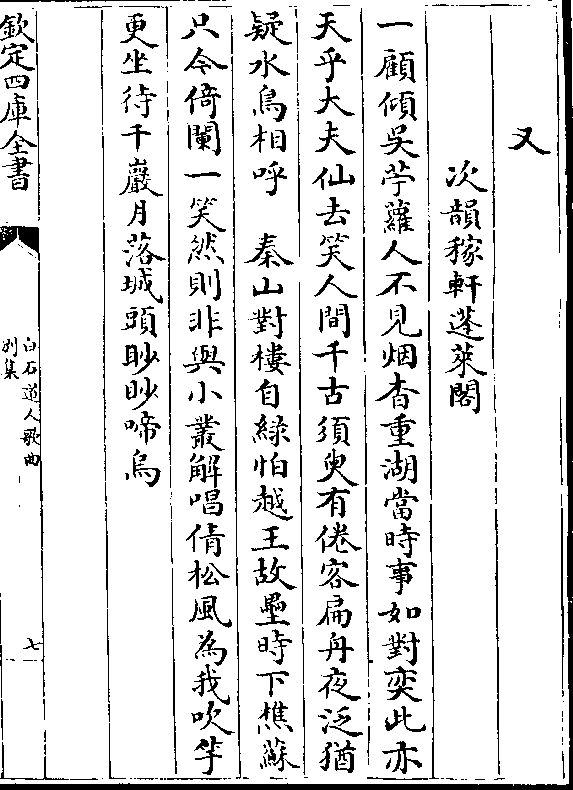 又
次韻稼軒蓬萊閣
一顧傾吳苧蘿人不見烟杳重湖當時事如對奕此亦
天乎大夫仙去笑人間千古須臾有倦客扁舟夜泛猶
疑水鳥相呼　秦山對樓自綠怕越王故壘時下樵蘇
只今倚闌一笑然則非與小叢解唱倩松風為我吹竽
更坐待千巖月落城頭眇眇啼烏
欽定四庫全書
白石道人歌曲
別集
七